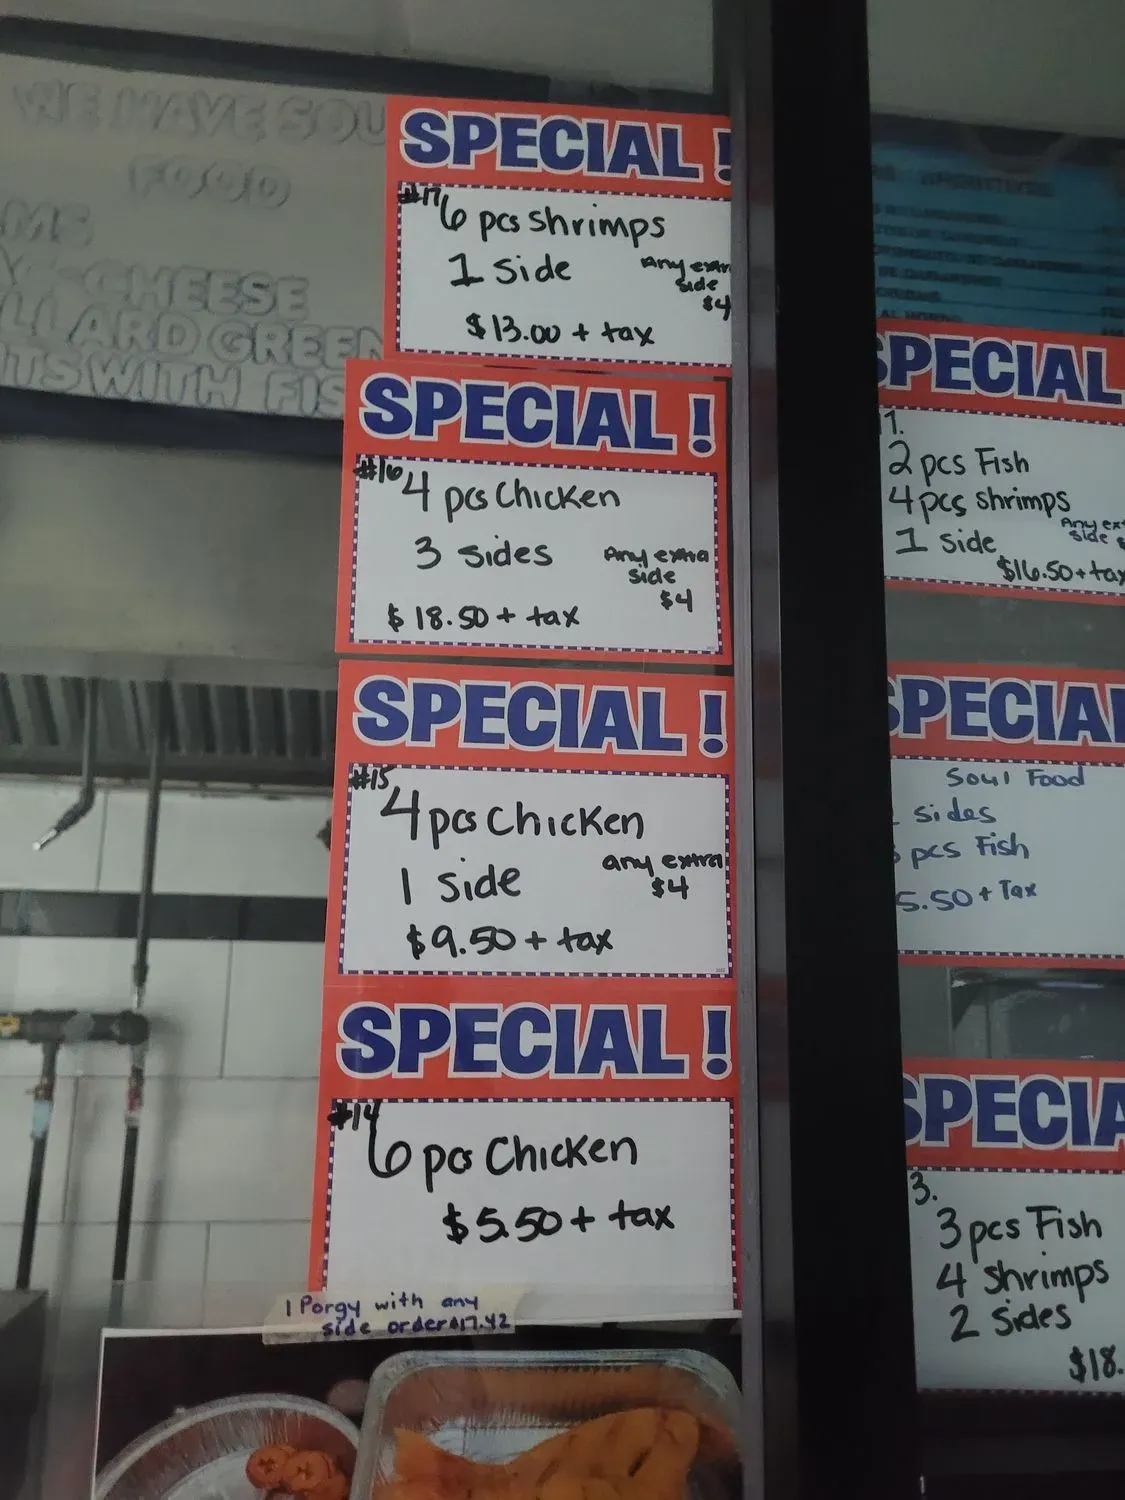 WE HAVE SOU
FOOD
CHEESE
LLARD GREEN
WITH FIS
SPECIAL!
#17
6 pcs shrimps
1 side
Any extr
side
$4
$13.00 + tax
SPECIAL!
#16
4 pcs Chicken
3 sides
Any extra
side
$4
$18.50 + tax
SPECIAL!
#15
4 pcs Chicken
1 side
any extra
$4
$9.50 + tax
SPECIAL!
#14
6 pcs Chicken
$5.50 + tax
1 Porgy with any
side order $17.42
SPECIAL
1.
2 pcs Fish
4 pcs shrimps
1 side
Any ex
side
$16.50 + tax
SPECIAL
Soul Food
sides
pcs Fish
5.50 + Tax
SPECIA
3.
3 pcs Fish
4 shrimps
2 sides
$18.